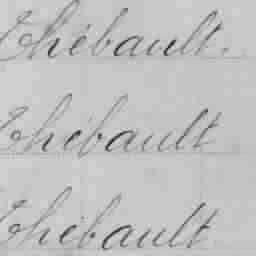 Thébault.
Thébault
Thébault